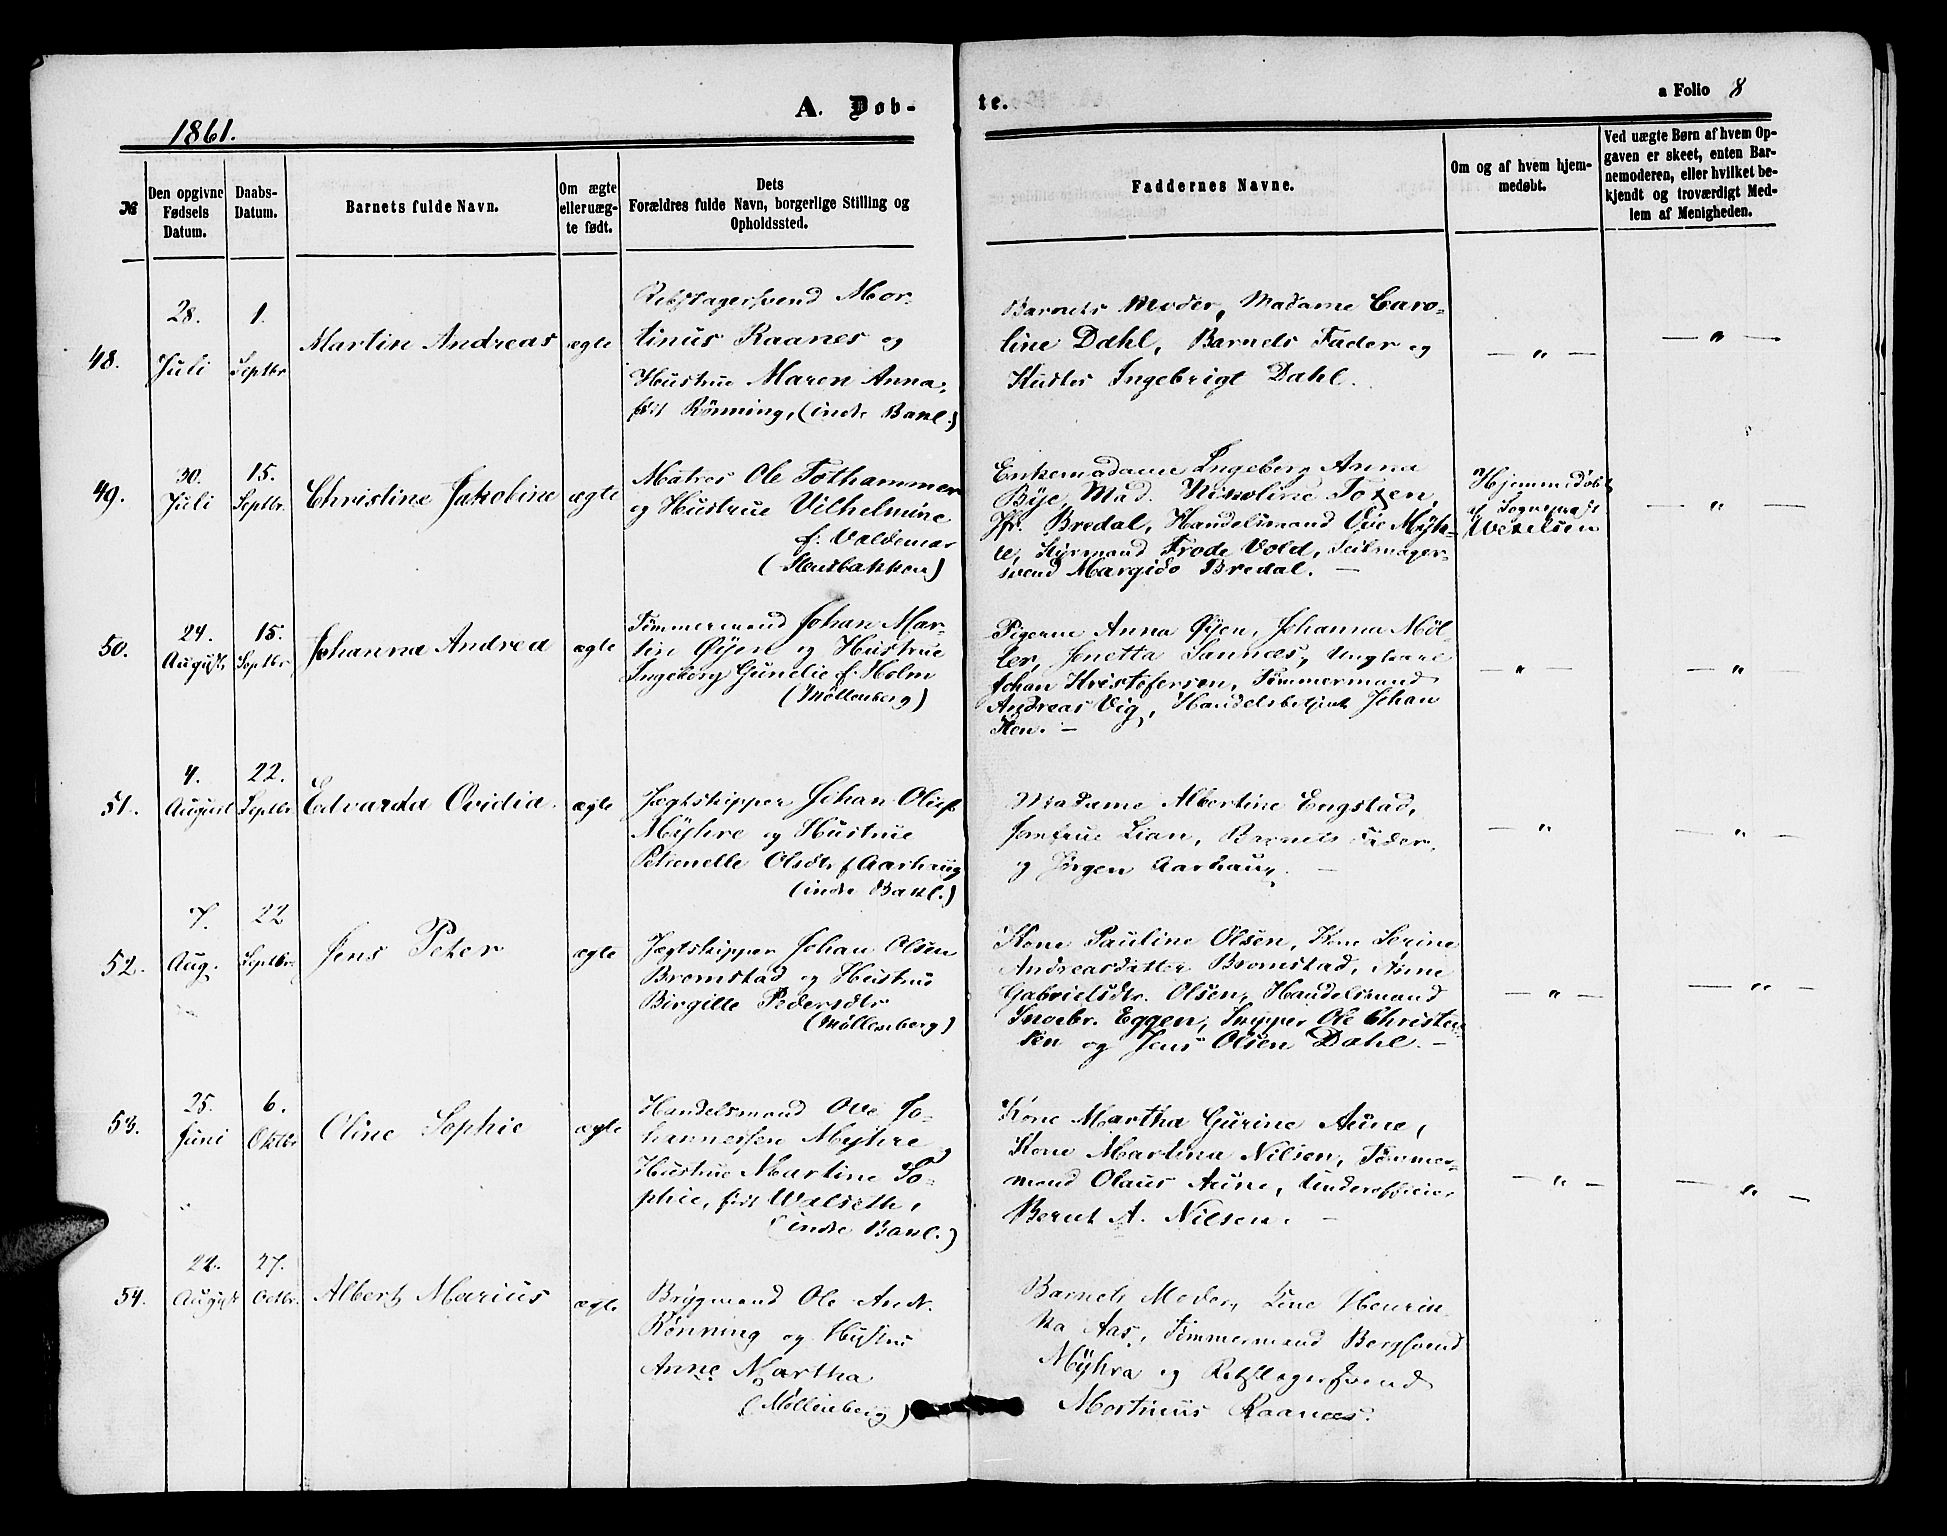 1861.
A. Døb-
te.
a Folio 8
№
Den opgivne Fødsels Datum.
Daabs-Datum.
Barnets fulde Navn.
Om ægte eller uægte født.
Dets Forældres fulde Navn, borgerlige Stilling og Opholdssted.
Faddernes Navne.
Om og af hvem hjemmedøbt.
Ved uægte Børn af hvem Opgaven er skeet, enten Barnemoderen, eller hvilket bekjendt og troværdigt Medlem af Menigheden.
48.
28. Juli
1. Septbr
Martin Andreas
ægte
Rebslagersvend Mor-
tinus Raanes og
Hustrue Maren Anna,
født Rønning, (indr Bakl.)
Barnets Moder, Madame Caro-
line Dahl, Barnets Fader og
Ingebrigt Dahl.
— " —
— " —
49.
30. Juli
15. Septbr.
Christine Jakobine
ægte
Matros Ole Fothammer
og Hustrue Vilhelmine
f. Valdemar
(Stensbakken)
Enkemadame Ingeberg Anna
Bye, Mad. Nikoline Foxen,
Jfr. Bredal, Handelsmand Ove Myh-
re, Styrmand Frode Vold, Seilmager-
svend Margido Bredal. —
Hjemmedøbt
af Sognepræst
Wexelsen
— " —
50.
24. August
15. Septbr
Johanna Andrea
ægte
Tømmermand Johan Mar-
tin Øyen og Hustrue
Ingeborg Gunelie f. Holm
(Møllenberg)
Pigerne Anna Øyen, Johanna Møl-
ler, Jenetta Sannæs, Ungkarl
Johan Kristofersen, Tømmermand
Andreas Vig, Handelsbetjent Johan
Sten. —
— " —
"
51.
4. August
22. Septbr
Edvarda Ovidia.
ægte
Jægtskipper Johan Olief
Myhre og Hustrue
Petronelle Olsdtr f Aarhaug
(indr Bakl.)
Madame Albertine Engstad,
Jomfrue Lian, Barnets Fader
og Jørgen Aarhaug. —
— " —
— " —
52.
7. Aug.
22 Septbr
Jens Peter
ægte
Jægtskipper Johan Olsen
Bromstad og Hustrue
Birgitte Pedersdtr
(Møllenberg)
Kone Pauline Olsen, Kone Serine
Andreasdatter Bromstad, Anne
Gabrielsdtr. Olsen, Handelsmand
Ingebr. Eggen, Skipper Ole Christen-
sen og Jens Olsen Dahl. —
— " —
— " —
53.
25. Juni
6. Oktbr
Oline Sophie
ægte
Handelsmand Ove Jo-
hannessen Myhre og
Hustrue Martine So-
phie, født Walseth,
(indre Bakl.)
Kone Martha Gurine Aune,
Kone Martina Nilsen, Tømmer-
mand Olaus Aune, Underofficier
Bernt A. Nilsen. —
— " —
— " —
54.
22. August
27. Octbr.
Albert Marius
ægte
Brygmand Ole Andr.
Rønning og Hustru
Anne Martha
(Møllenberg)
Barnets Moder, Line Henrik-
ka Aas, Tømmermand Bergsvend
Myhra og Rebslagersvend
Mortinus Raanæs.